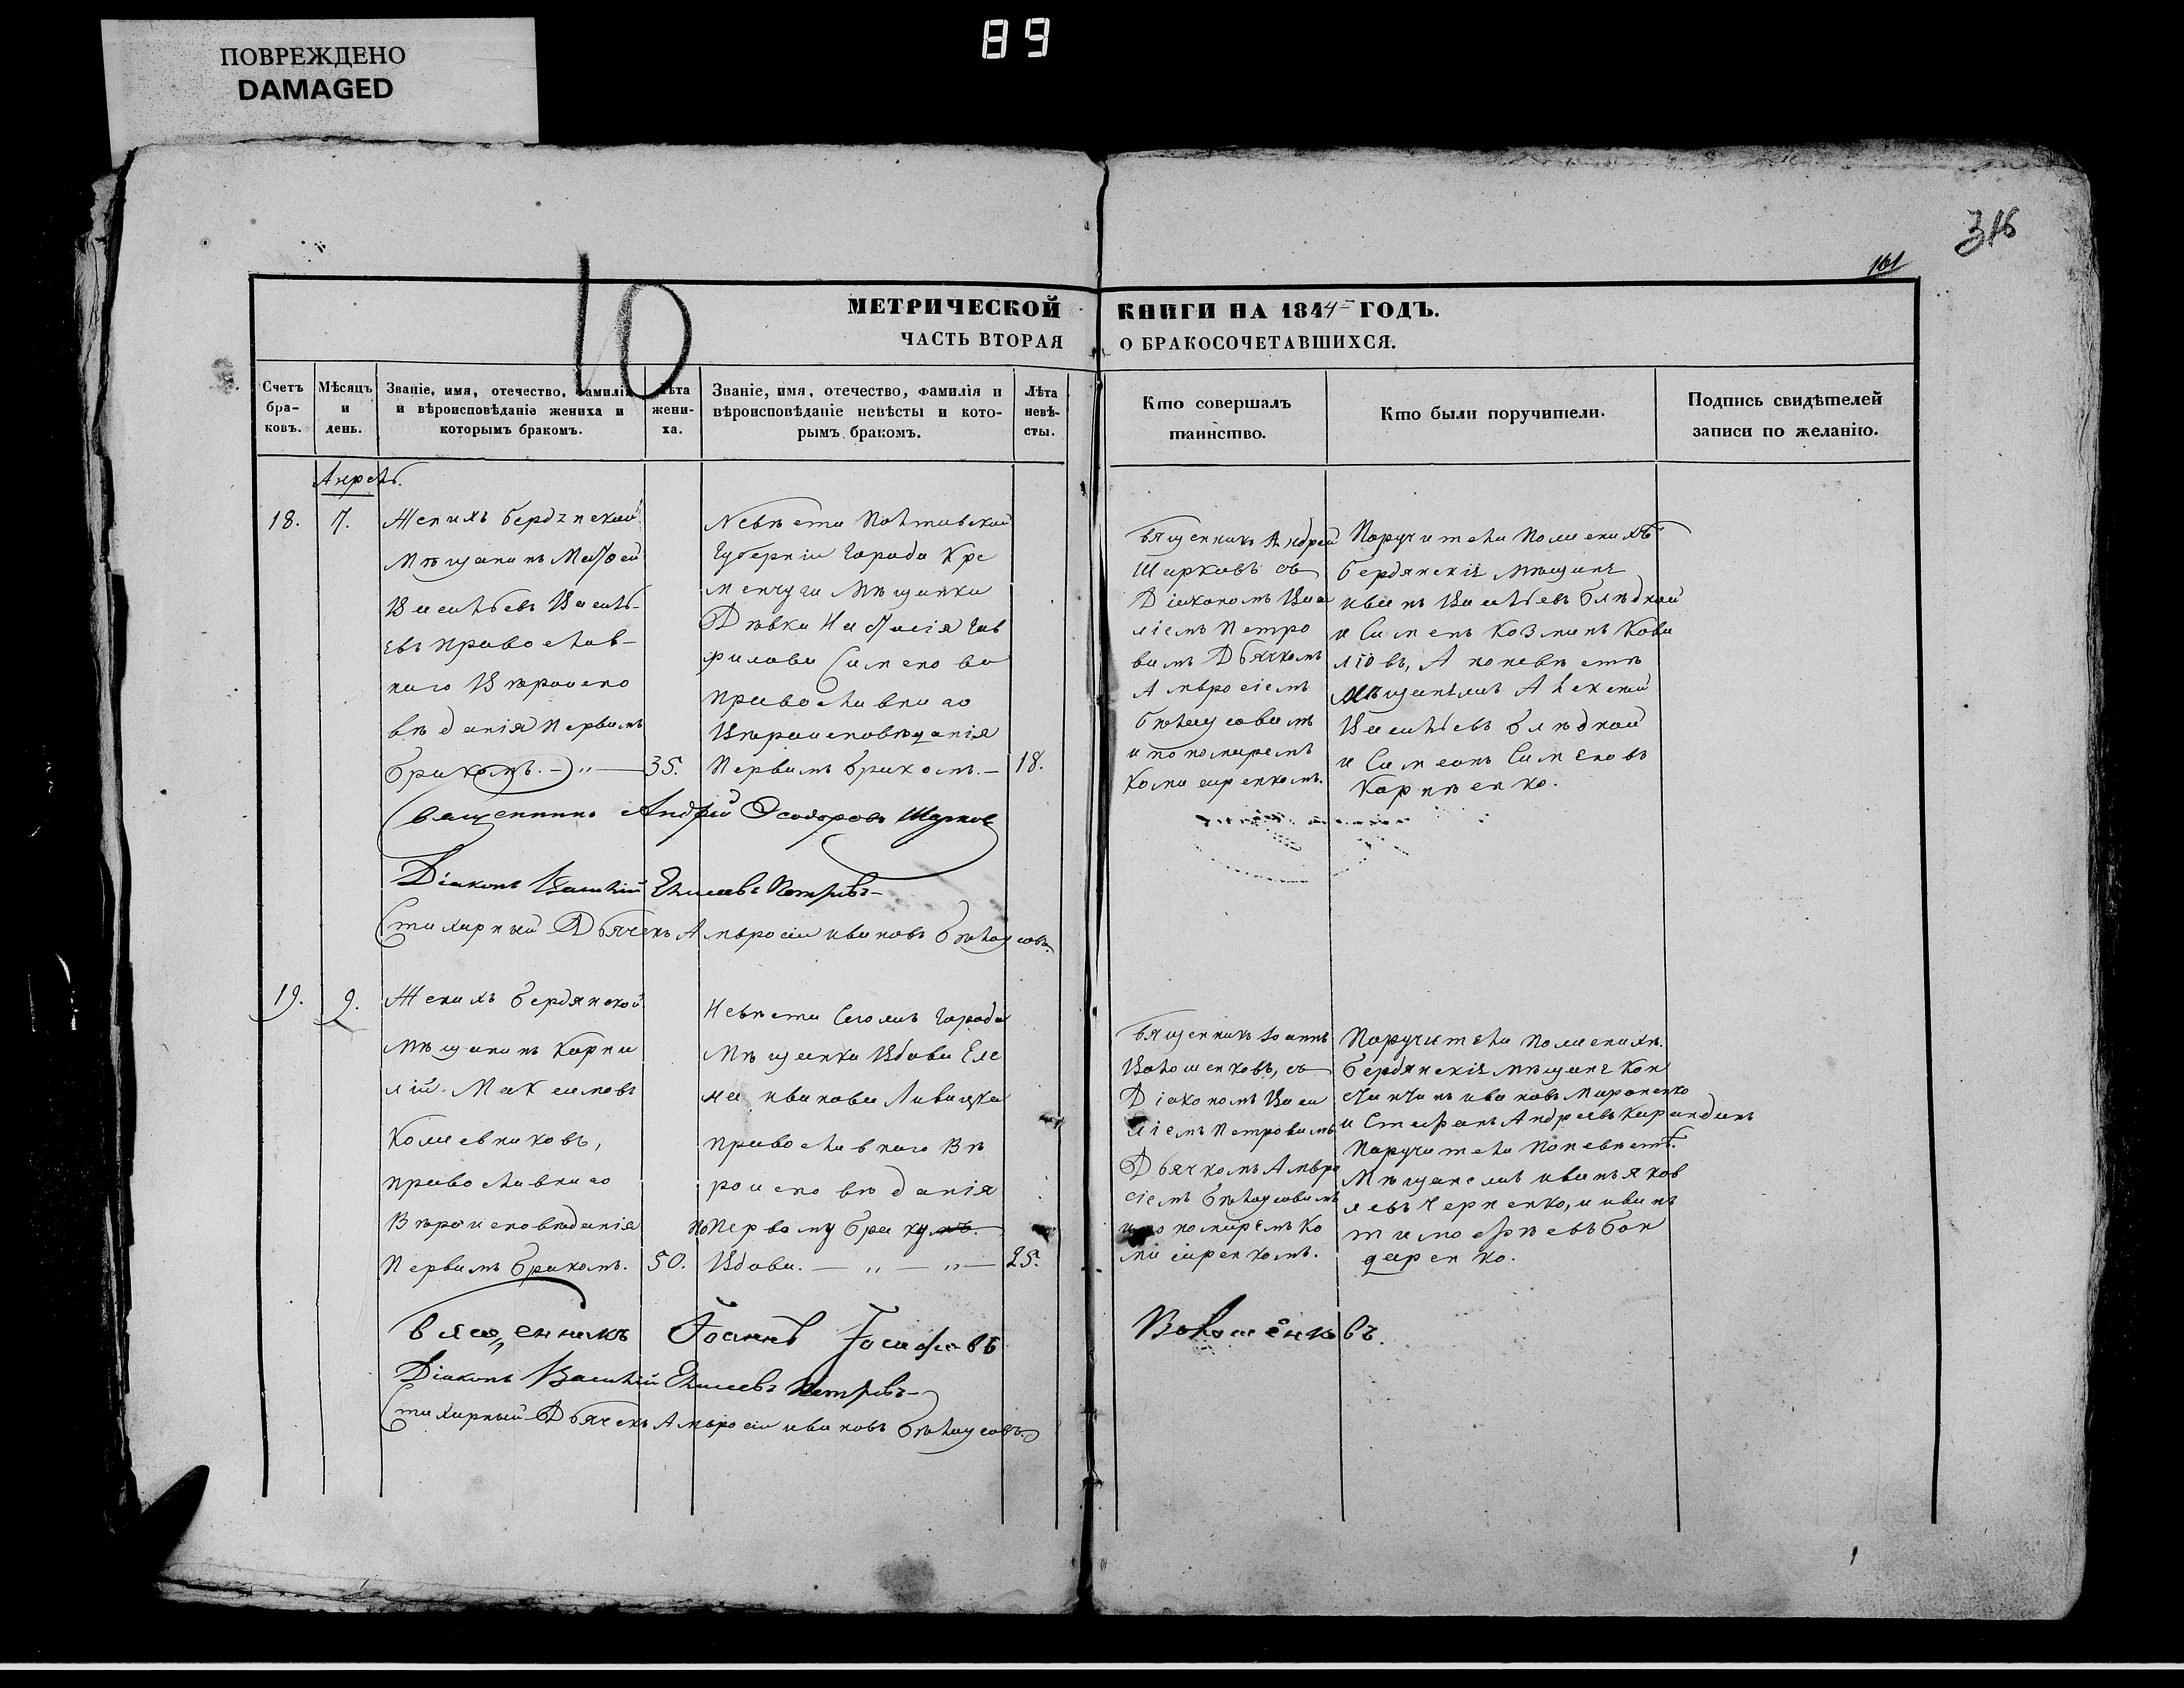 ПОВРЕЖДЕНО
DAMAGED
89
316
161
10
МЕТРИЧЕСКОЙ КНИГИ НА 1844 ГОДЪ.
ЧАСТЬ ВТОРАЯ О БРАКОСОЧЕТАВШИХСЯ.
Счетъ бра-
ковъ.
Мѣсяцъ
и
день.
Званіе, имя, отечество, фамилія
и вѣроисповѣданіе жениха и
которымъ бракомъ.
Лѣта
жени-
ха.
Званіе, имя, отечество, фамилія и
вѣроисповѣданіе невѣсты и кото-
рымъ бракомъ.
Лѣта
невѣ-
сты.
Кто совершалъ
таинство.
Кто были поручители.
Подпись свидѣтелей
записи по желанію.
Апрель.
18.
7.
Женихъ бердянской
Мѣщанинъ Матфей
Васильевъ Василь-
евъ православ-
наго Вѣроиспо
вѣданія Первымъ
бракомъ. — " — 35.
Невѣста Полтавской
Губерніи Города Кре
менчуга Мѣщанка
Дѣвка Настасія Гав
рилова Сименова
православнаго
Вѣроисповѣданія
Первымъ бракомъ. — 18.
Священникъ Андрей
Шарковъ съ
Діакономъ Васи
ліемъ Петро
вымъ Дьячкомъ
Амвросіемъ
Бѣлоусовымъ
и пономаремъ
Комисаренкомъ.
Поручители по женихѣ
бердянскіе мѣщане
иванъ Васильевъ блѣдной
и Сименъ Козминъ Кова
ліовъ, А по невѣстѣ
Мѣщанѣжъ Алексей
Васильевъ блѣдной
и Сименъ Сименовъ
Карпѣенко.
Священникъ Андрей Феодоровъ Шарковъ
Діаконъ Василій Елисеевъ Петровъ
Стихарный Дьячекъ Амвросій ивановъ Бѣлоусовъ
19.
9.
Женихъ бердянской
Мѣщанинъ Карни
лій Максимовъ
Кожевниковъ,
православнаго
Вѣроисповѣданія
Первымъ бракомъ. 50.
Невѣста Сегожъ Города
Мѣщанка Вдова Еле
на иванова Ливицка
православнаго Вѣ
роисповѣданія
по Первому браку
Вдова. — " — " — 25.
Священникъ Іоаннъ
Волошенковъ, съ
Діакономъ Васи
ліемъ Петровымъ
Дьячкомъ Амвро
сіемъ Бѣлоусовымъ
и пономаремъ Ко
мисаренкомъ.
Поручители по женихѣ.
бердянскіе мѣщане Кон
стантинъ ивановъ Мироненко
и Стефанъ Андреевъ Карандинъ
Поручители по невѣстѣ.
Мѣщанежъ иванъ Яков
левъ Черненко, и иванъ
тимофѣевъ бон
даренко.
Священникъ Іоаннъ Іосифовъ Волошенковъ.
Діаконъ Василій Елисеевъ Петровъ
Стихарный Дьячекъ Амвросій ивановъ Бѣлоусовъ